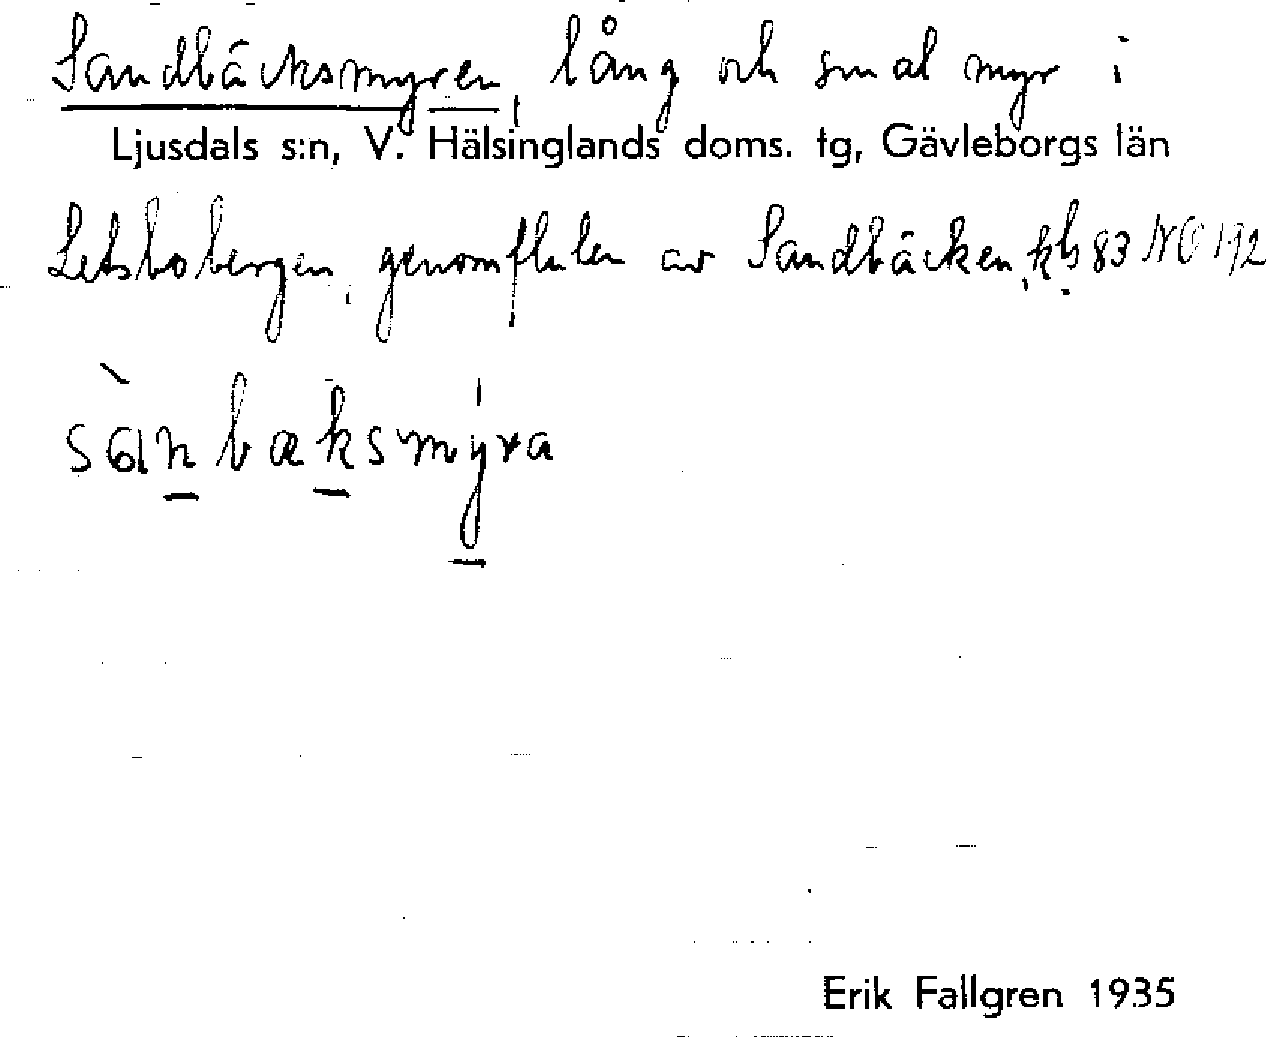 Sandbäcksmyren, lång och smal myr i
Ljusdals s:n, V. Hälsinglands doms. tg, Gävleborgs län
Letsbobergen, genomfluten av Sandbäcken, kb 83 NO 192
sanbæksmyra
Erik Fallgren 1935